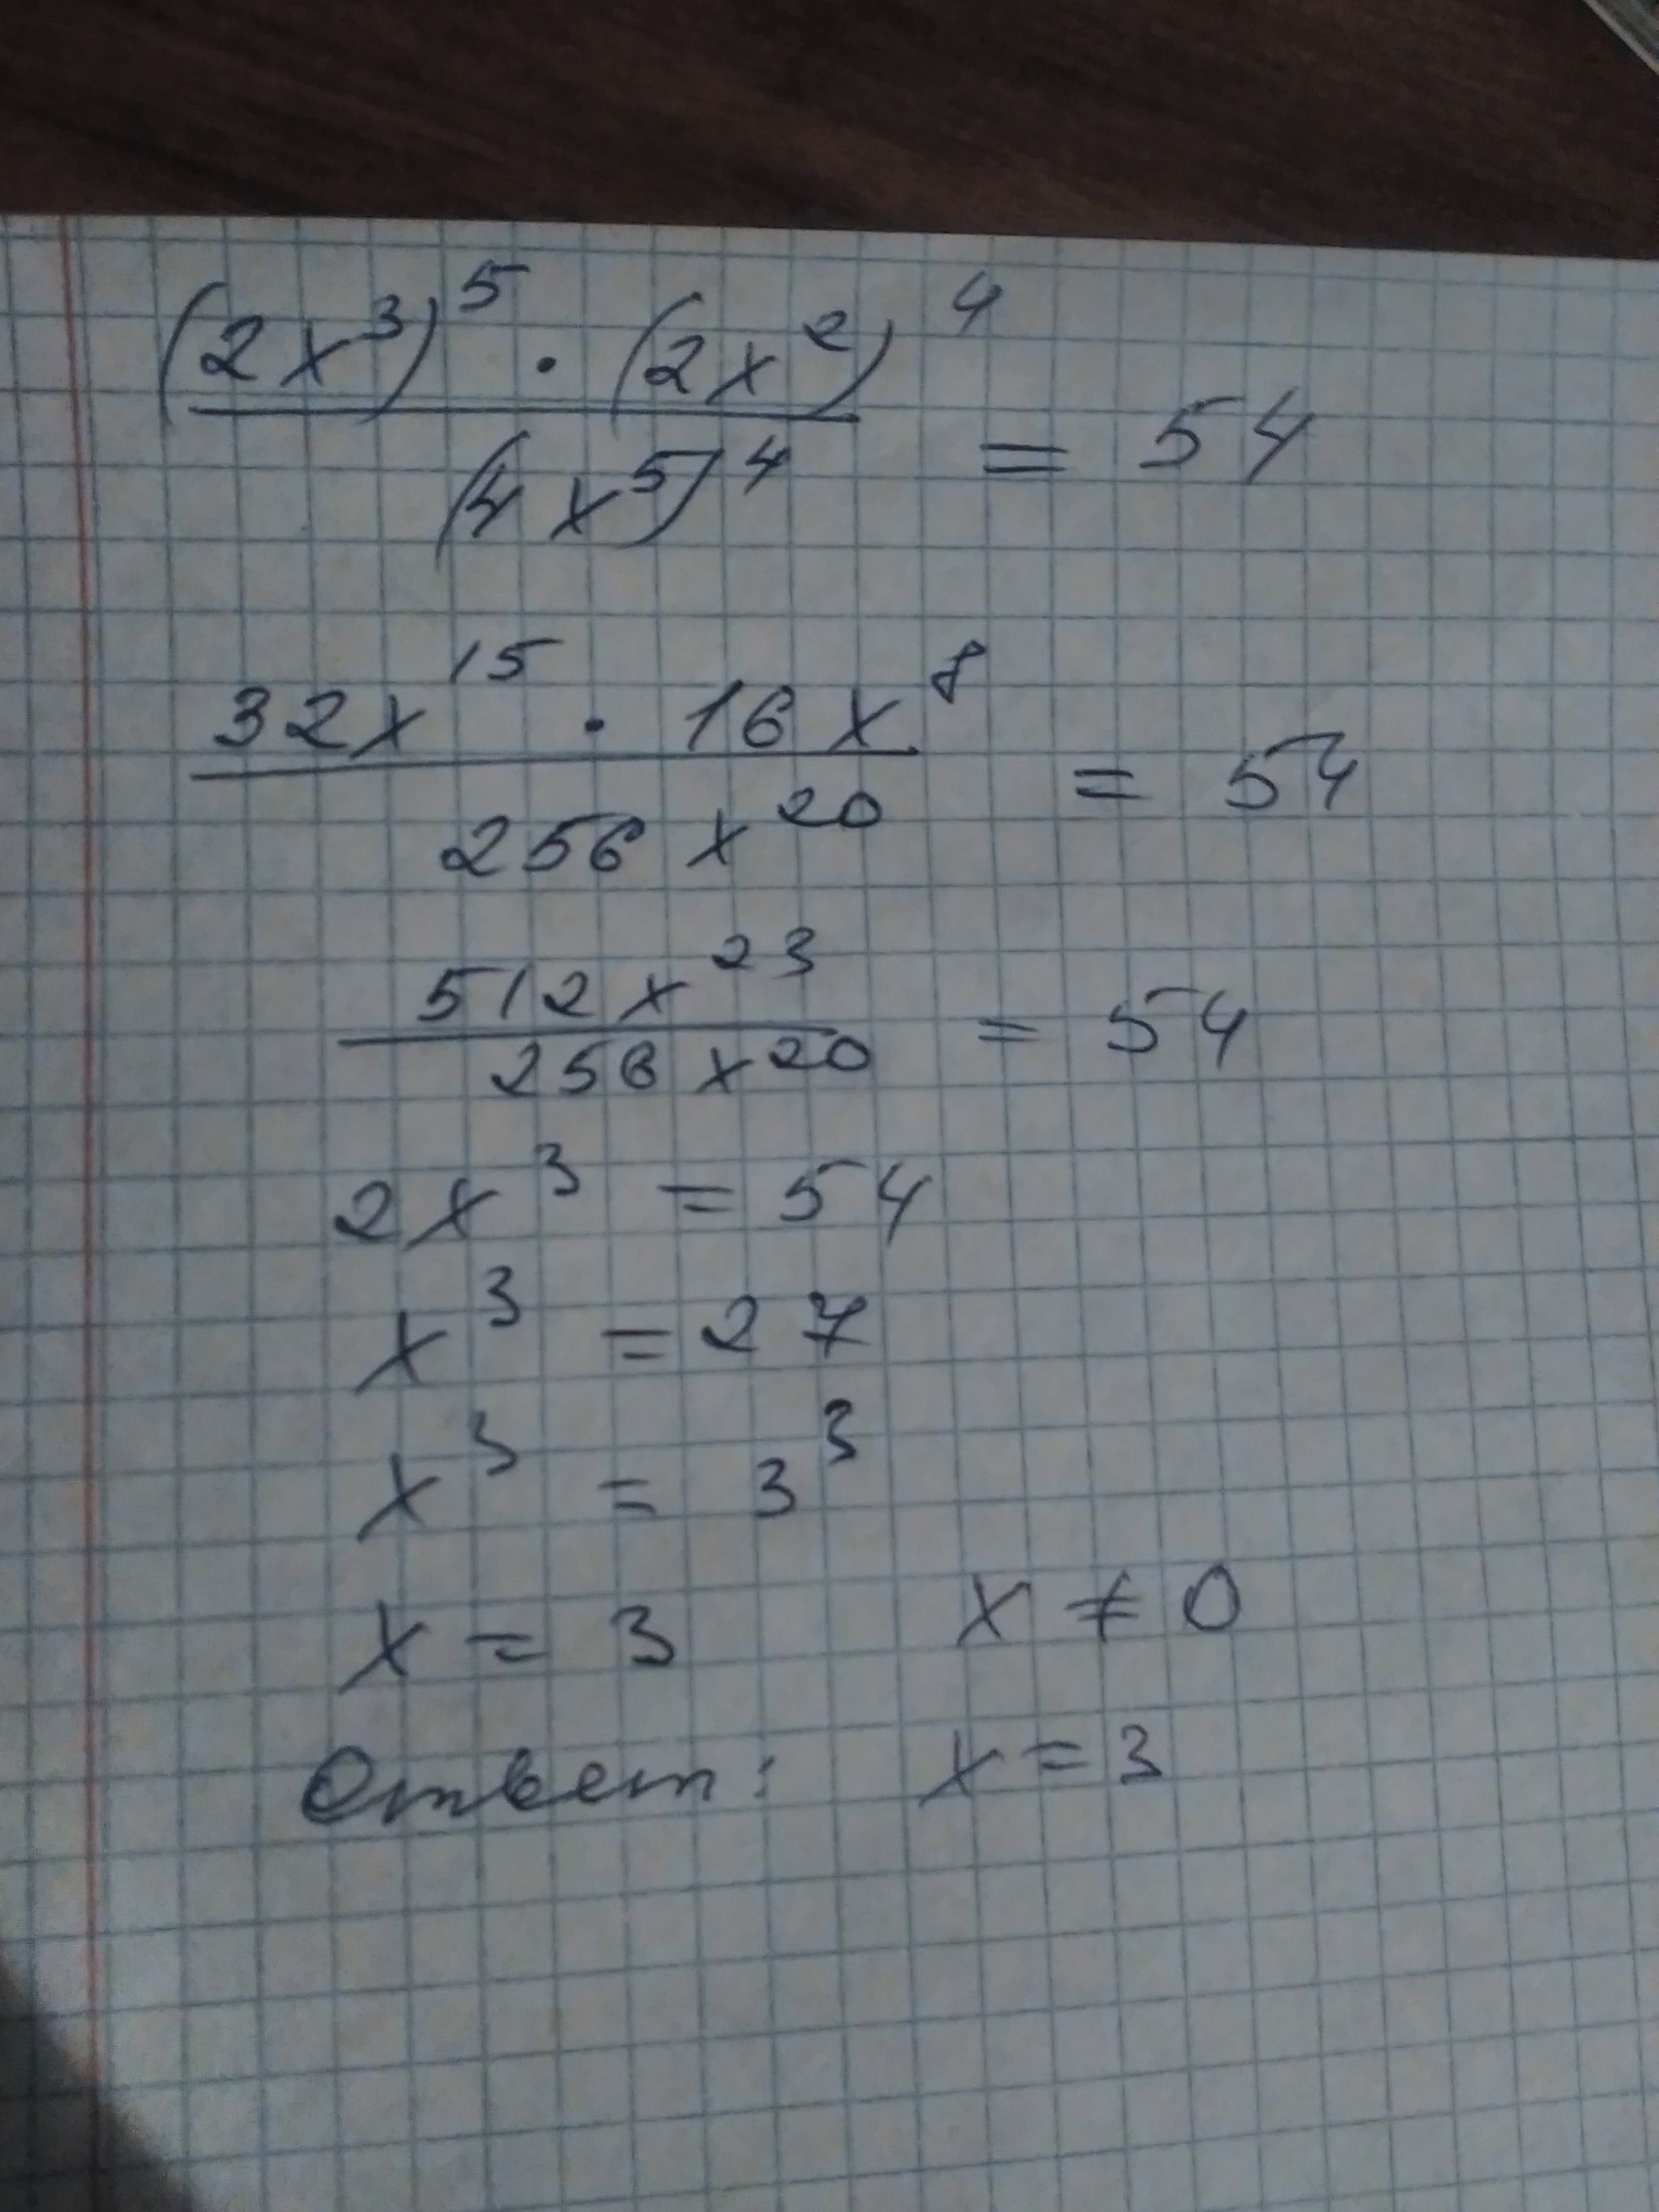 (2x³)⁵ · (2x²)⁴ / (4x⁵)⁴ = 54
32x¹⁵ · 16x⁸ / 256x²⁰ = 54
512x²³ / 256x²⁰ = 54
2x³ = 54
x³ = 27
x³ = 3³
x = 3 x ≠ 0
Ответ: x = 3